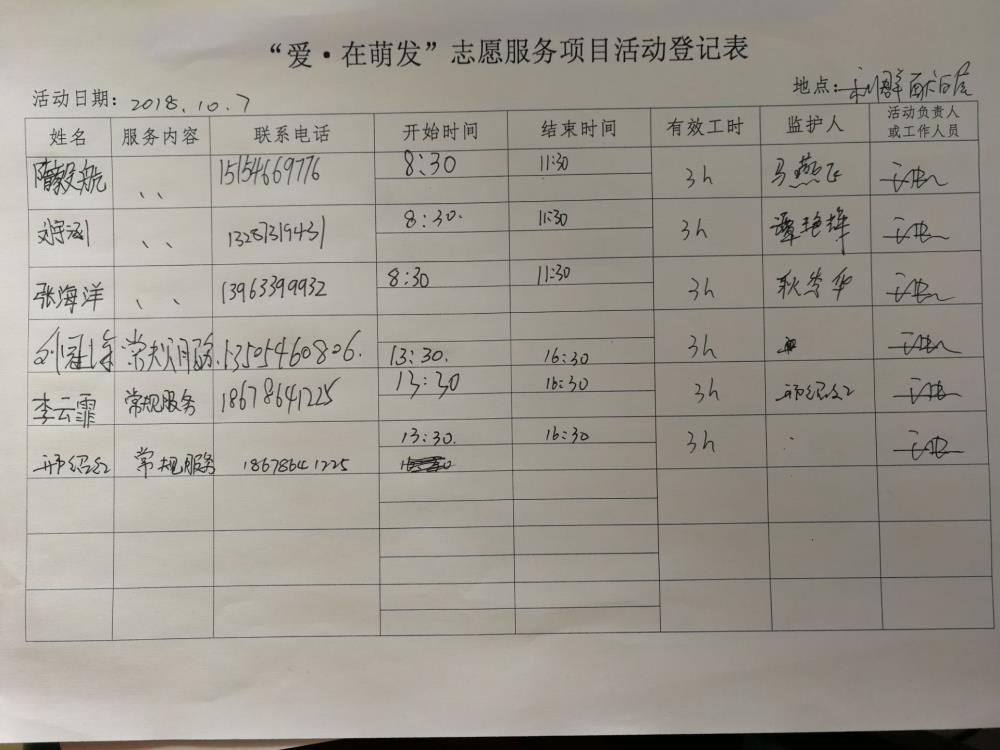 “爱·在萌发”志愿服务项目活动登记表
活动日期：2018.10.7 地点：利群
姓名 服务内容 联系电话 开始时间 结束时间 有效工时 监护人 活动负责人或工作人员
隋毅航 、、 15154669776 8:30 11:30 3h 马燕飞
、、 13287319431 8:30. 11:30 3h 谭艳辉
张海洋 、、 13963399932 8:30 11:30 3h 耿秀华
常规服务 13505460806. 13:30. 16:30 3h
李云霏 常规服务 18678641225 13:30 16:30 3h 邢绍红
邢绍红 常规服务 18678641225 13:30. 16:30 3h